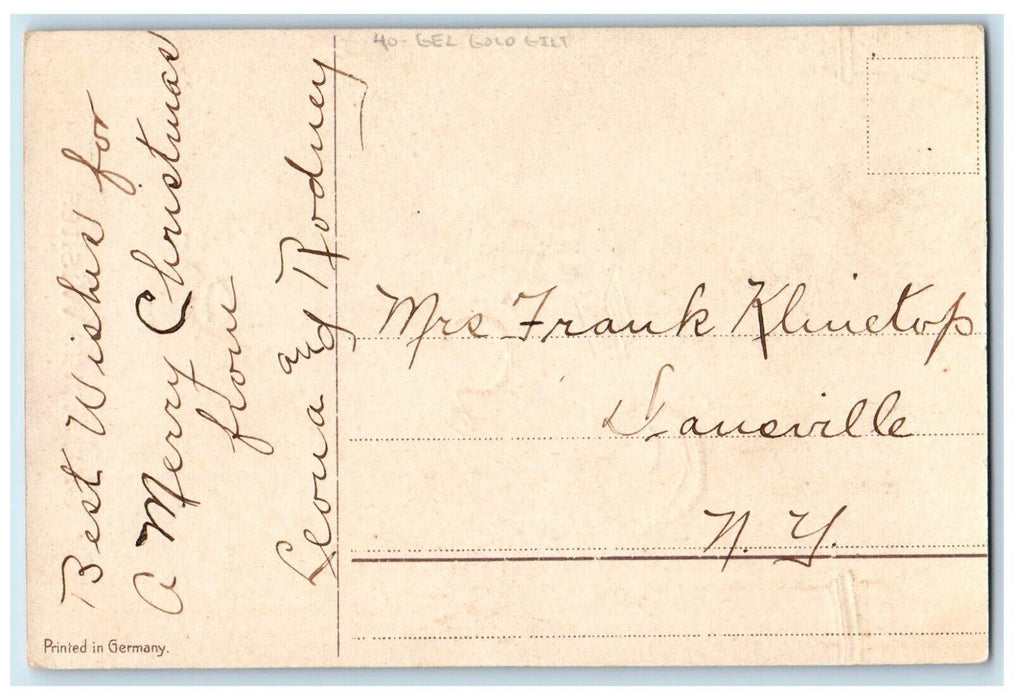 40- GEL GOLD GILT
Best Wishes for
a Merry Christmas
from
Leona and Rodney
Mrs Frank Klinetop
Dansville
N. Y.
Printed in Germany.